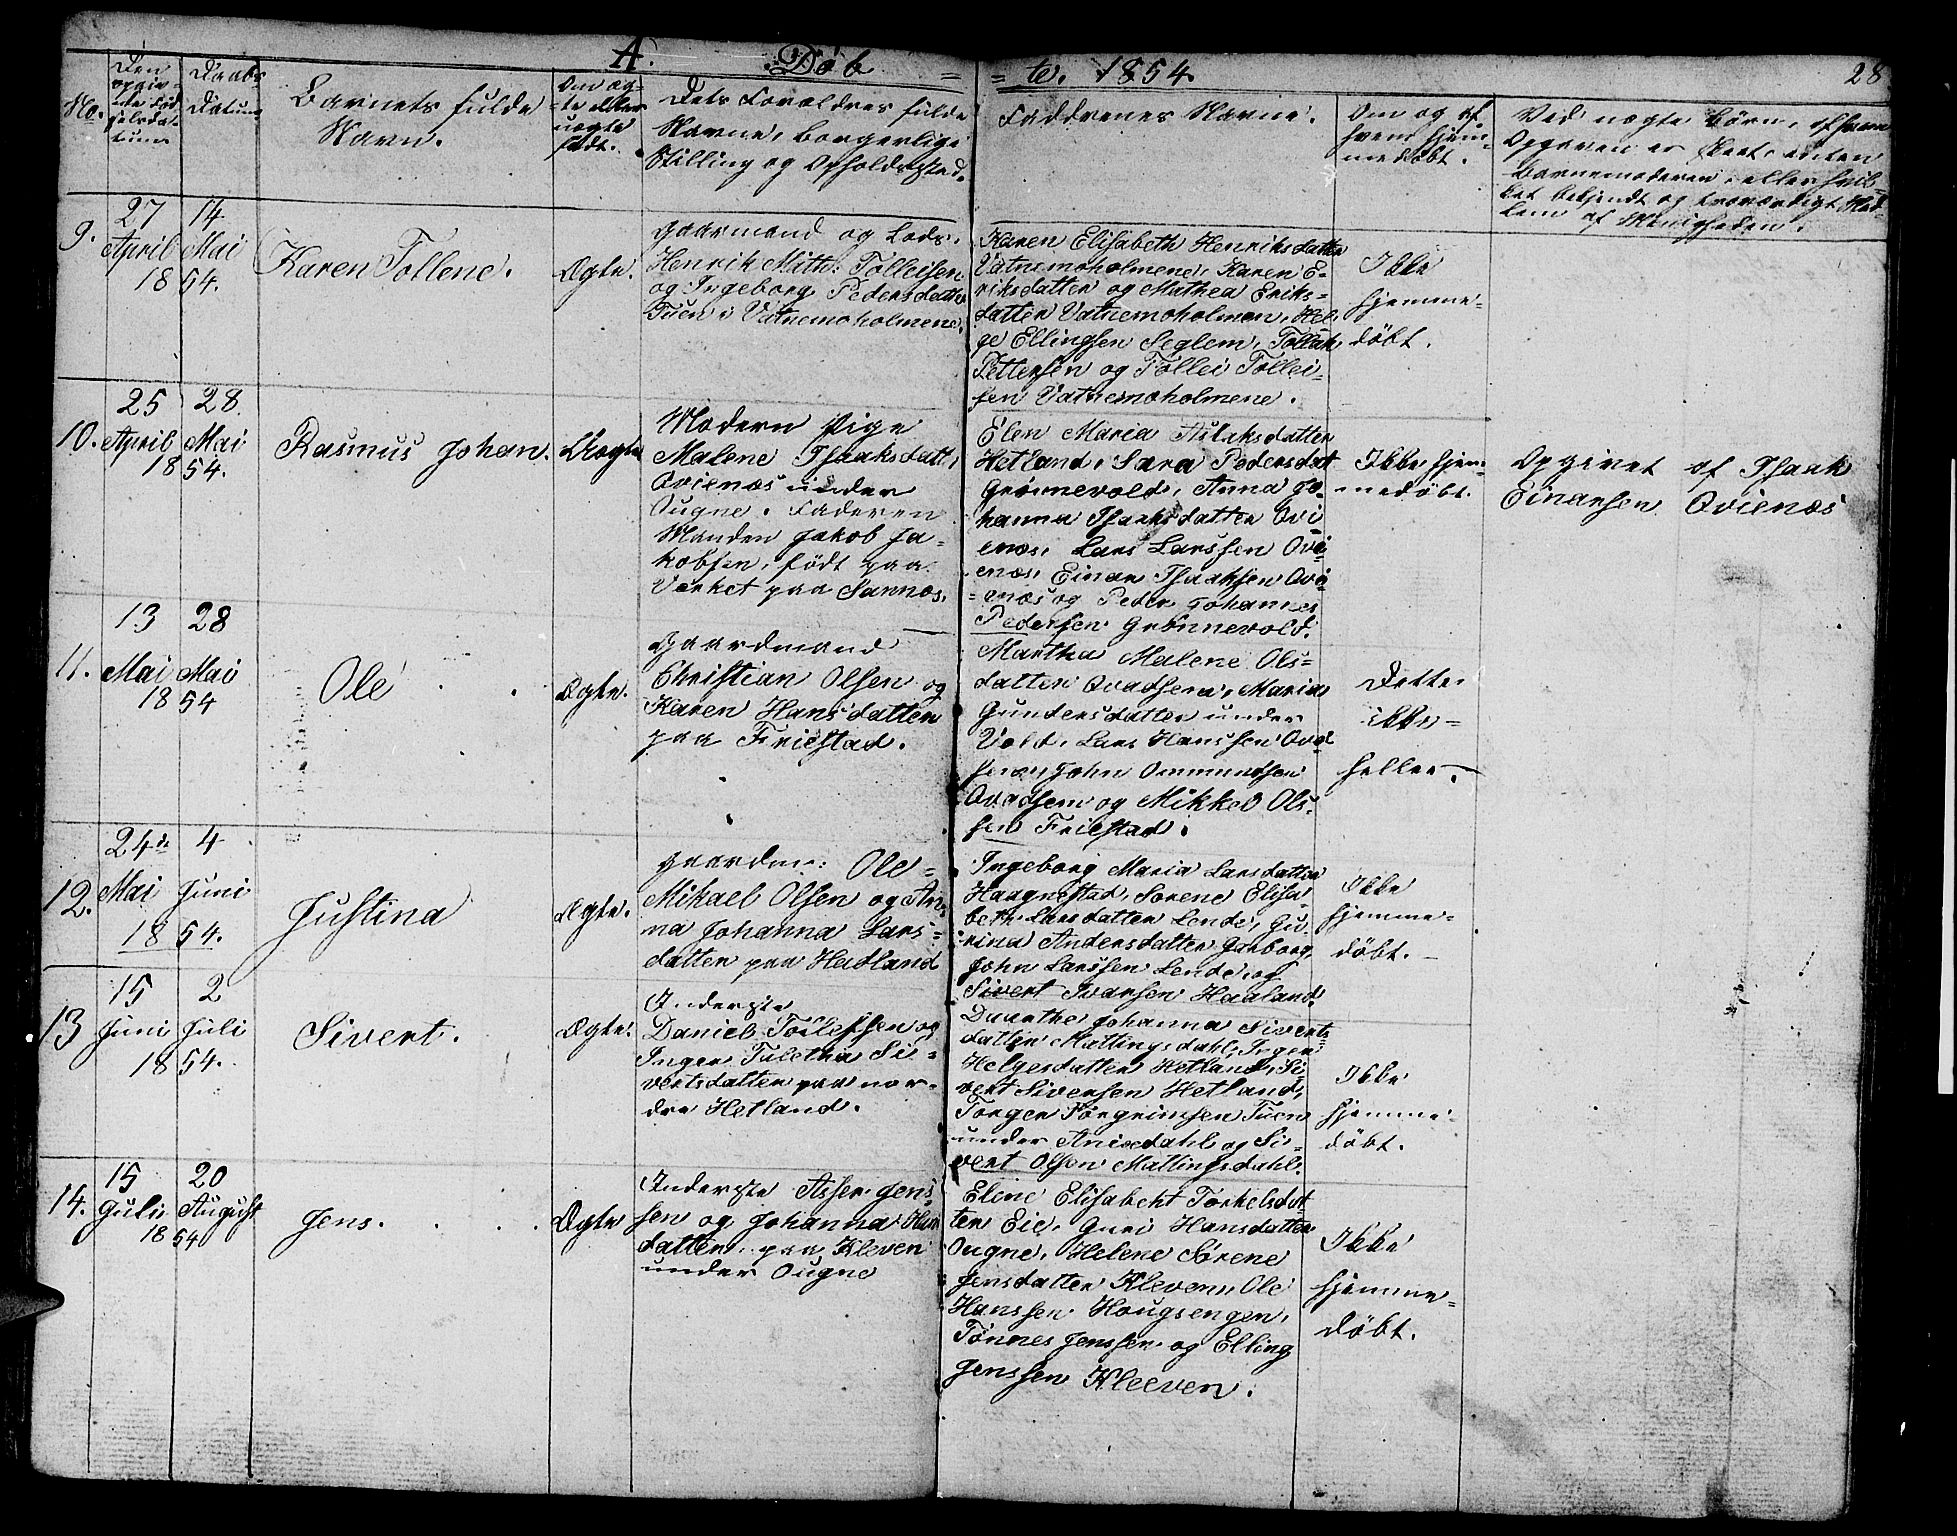 A. Døb = = te. 1854. 28
No.
Den
opgiv-
ne Fød-
selsda-
tum
Daabs
Datum
Barnets fulde
Navn.
Om æg-
te eller
uægte
født.
Dets Forældres fulde
Navne, borgerlige
Stilling og Opholdssted.
Faddrenes Navne.
Om og af
hvem hjem-
medøbt.
Ved uægte Børn, af hvem
Opgaven er skeet, enten
Barnemoderen, eller hvil-
ket bekjendt og troværdigt Med-
lem af Menigheden.
9.
27
April
14
Mai
1854.
Karen Tollene.
Ægte.
Gaarmand og Lods.
Henrik Mith: Tolleisen
og Ingeborg Pedersdatter
Tuen i Vatnemoholmene.
Karen Elisabeth Henriksdatter
Vatnemoholmene, Karen E-
riksdatter og Mathea Eriks-
datter Vatnemoholmen, Hel-
ge Ellingsen Seglem, Tollak
Pettersen og Tollei Tollei-
sen Vatnemoholmene.
Ikke
hjemme-
døbt.
10.
25
April
28.
Mai
1854.
Rasmus Johan.
Uægte
Modern Pige
Malene Isaaksdatt,
Qvienæs under
Ougne. Faderen
Manden Jakob Ja-
kobsen, født paa
Værket paa Sannæs.
Elen Maria Aslaksdatter
Hetland, Sara Pedersdat
Grønnevold, Anna Jo-
hanna Isaaksdatter Qvi
enæs, Lars Larssen Qvi-
enæs, Einar Isaaksen Qvi-
enæs og Peder Johannes
Pedersen Grønnevold.
Ikke hjem-
medøbt.
Opgivet af Isaak
Einarsen Qvienæs
11.
13
Mai
28
Mai
1854
Ole
Ægte.
Gaardmand
Christian Olsen og
Karen Hansdatter
paa Friestad.
Martha Malene Ols-
datter Qvadsem, Maria
Gundersdatter under
Vold, Lars Hanssen Qvad
sem, John Ommundsen
Qvadsem og Mikkel Ols-
sen Friestad.
Dette
ikke
heller.
12.
24de
Mai
4
Juni
1854.
Justina
Ægte.
Gaardm: Ole
Mikael Olsen og An-
na Johanna Lars-
datter paa Hadland
Ingeborg Maria Larsdatter
Haugnestad, Sorene Elisa-
beth Larsdatter Lende, Gu-
rina Andersdatter Garborg,
John Larssen Lende, og
Sivert Ivarsen Haaland.
Ikke
hjemme-
døbt.
13
15
Juni
2
Juli
1854.
Sivert.
Ægte.
Inderste
Daniel Tollefsen og
Inger Taletha Si-
vertsdatter paa nor-
dre Hetland.
Daarthe Johanna Siverts
datter Mattingsdahl, Inger
Helgesdatter Hetland, Si-
vert Siversen Hetland,
Torger Torgrimsen Tuen
under Anisdahl og Si-
vert Olsen Mattingsdahl.
Ikke
hjemme
døbt.
14.
15
Juli
20
August
1854
Jens.
Ægte
Inderste Asser Jens-
sen og Johanna Hans
datter paa Kleven
under Ougne
Elene Elisabeht Torkelsdat
ter Eie, Guri Hansdatter
Ougne, Helene Sørene
Jensdatter Kleven, Ole
Hanssen Hougsengen,
Tønnes Jenssen og Elling
Jenssen Kleeven.
Ikke
hjemme-
døbt.